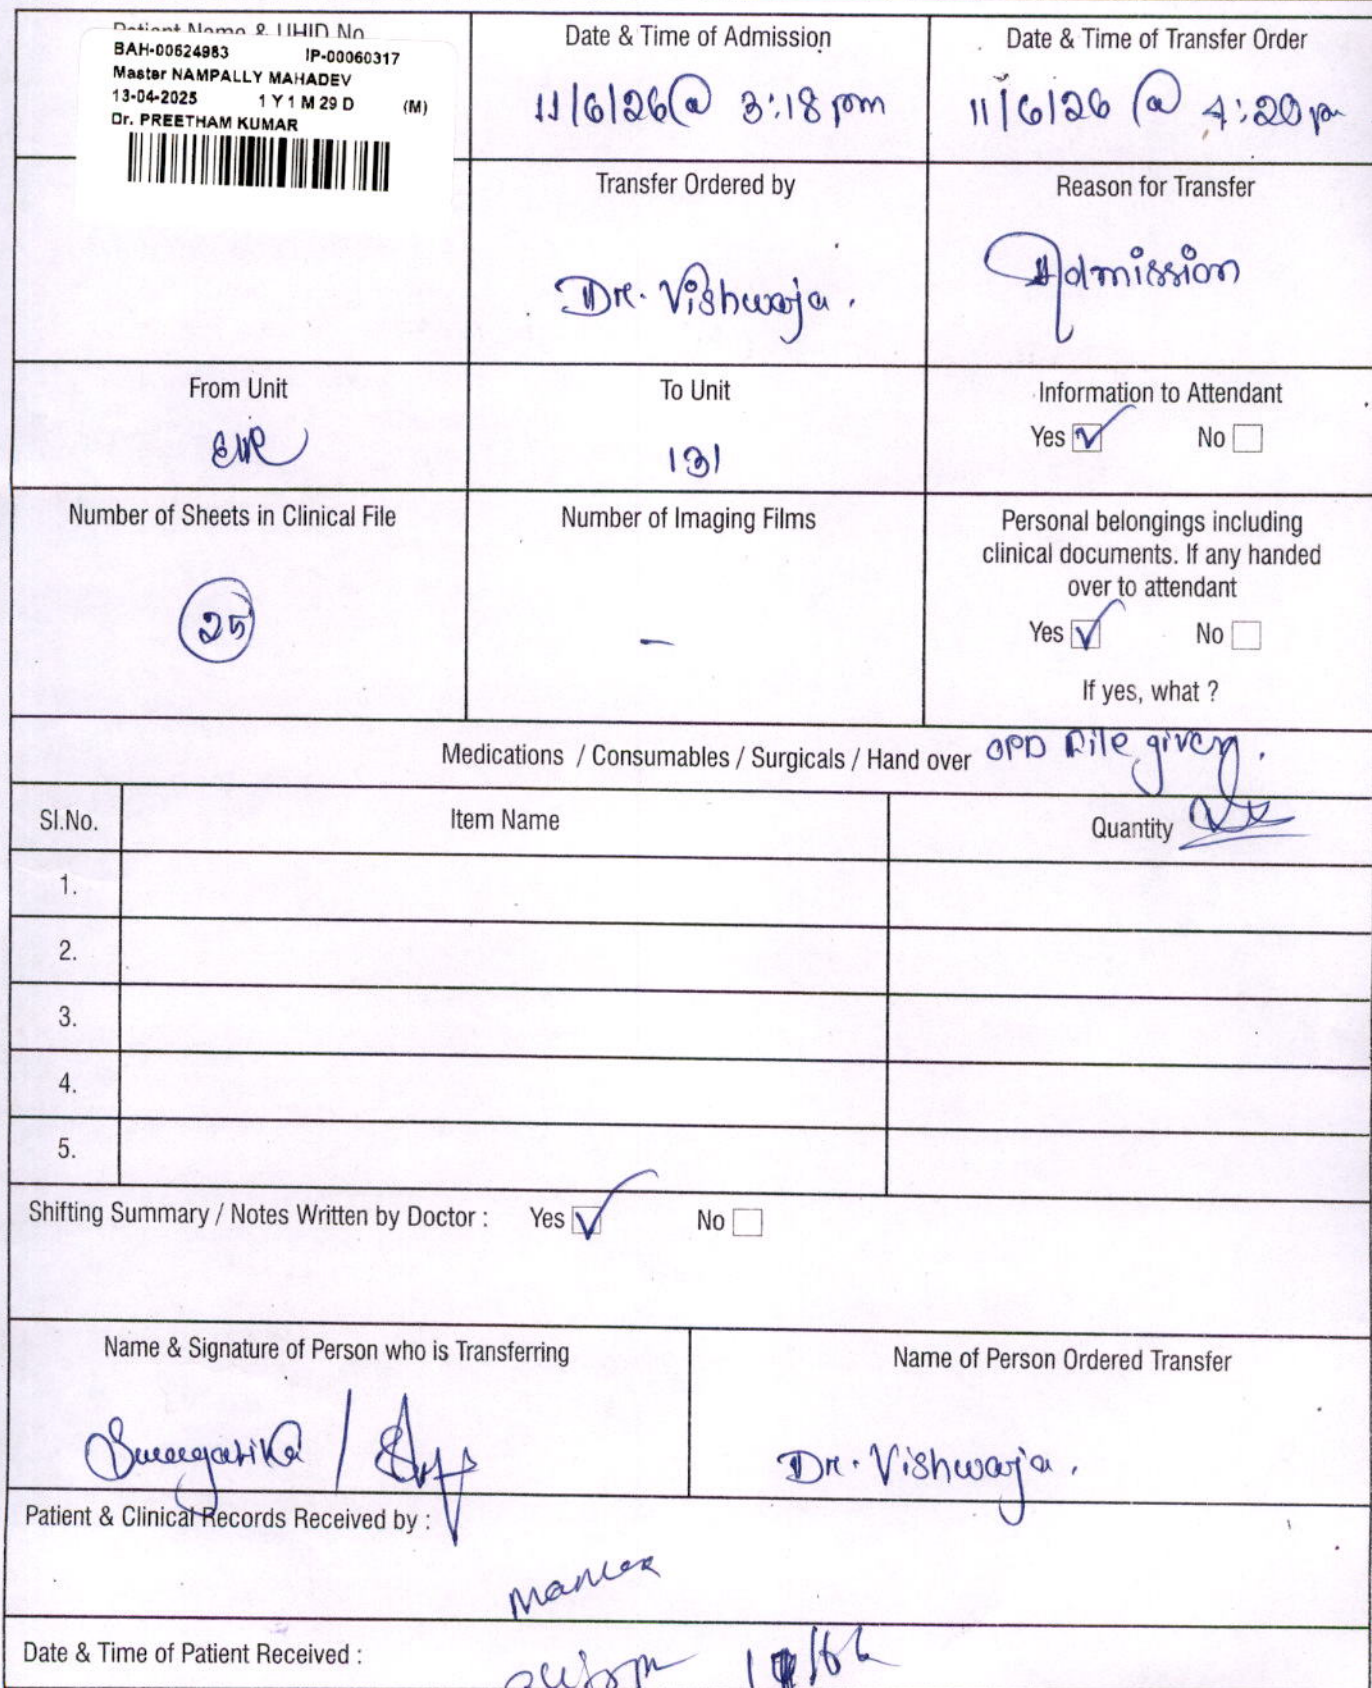 Patient Name & UHID No
BAH-00624983 IP-00060317
Master NAMPALLY MAHADEV
13-04-2025 1 Y 1 M 29 D (M)
Dr. PREETHAM KUMAR
Date & Time of Admission
11/6/26 @ 3:18 pm
Date & Time of Transfer Order
11/6/26 @ 4:20 pm
Transfer Ordered by
Dr. Vishwaja.
Reason for Transfer
Admission
From Unit
EMR
To Unit
131
Information to Attendant
Yes ☑ No ☐
Number of Sheets in Clinical File
25
Number of Imaging Films
–
Personal belongings including
clinical documents. If any handed
over to attendant
Yes ☑ No ☐
If yes, what ?
OPD File given.
Medications / Consumables / Surgicals / Hand over
Sl.No. Item Name Quantity
1.
2.
3.
4.
5.
Shifting Summary / Notes Written by Doctor : Yes ☑ No ☐
Name & Signature of Person who is Transferring
Name of Person Ordered Transfer
Dr. Vishwaja.
Patient & Clinical Records Received by :
Date & Time of Patient Received :